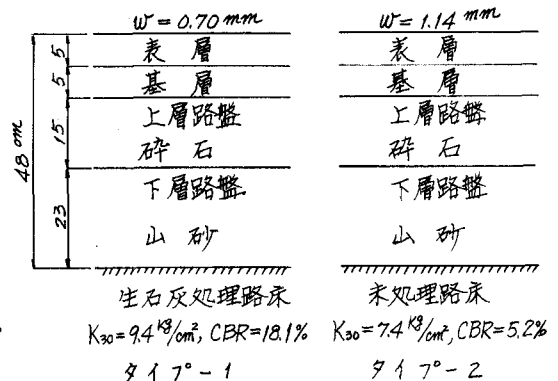 w = 0.70 mm
表層
基層
上層路盤
砕石
下層路盤
山砂
生石灰処理路床
K30 = 9.4 kg/cm², CBR = 18.1%
タイプ-1
48 cm
5
5
15
23
w = 1.14 mm
表層
基層
上層路盤
砕石
下層路盤
山砂
未処理路床
K30 = 7.4 kg/cm², CBR = 5.2%
タイプ-2